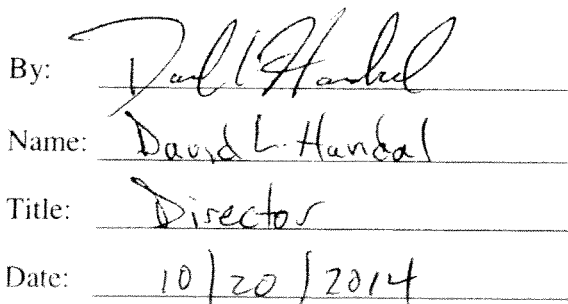 By: David L Handal
Name: David L. Handal
Title: Director
Date: 10/20/2014